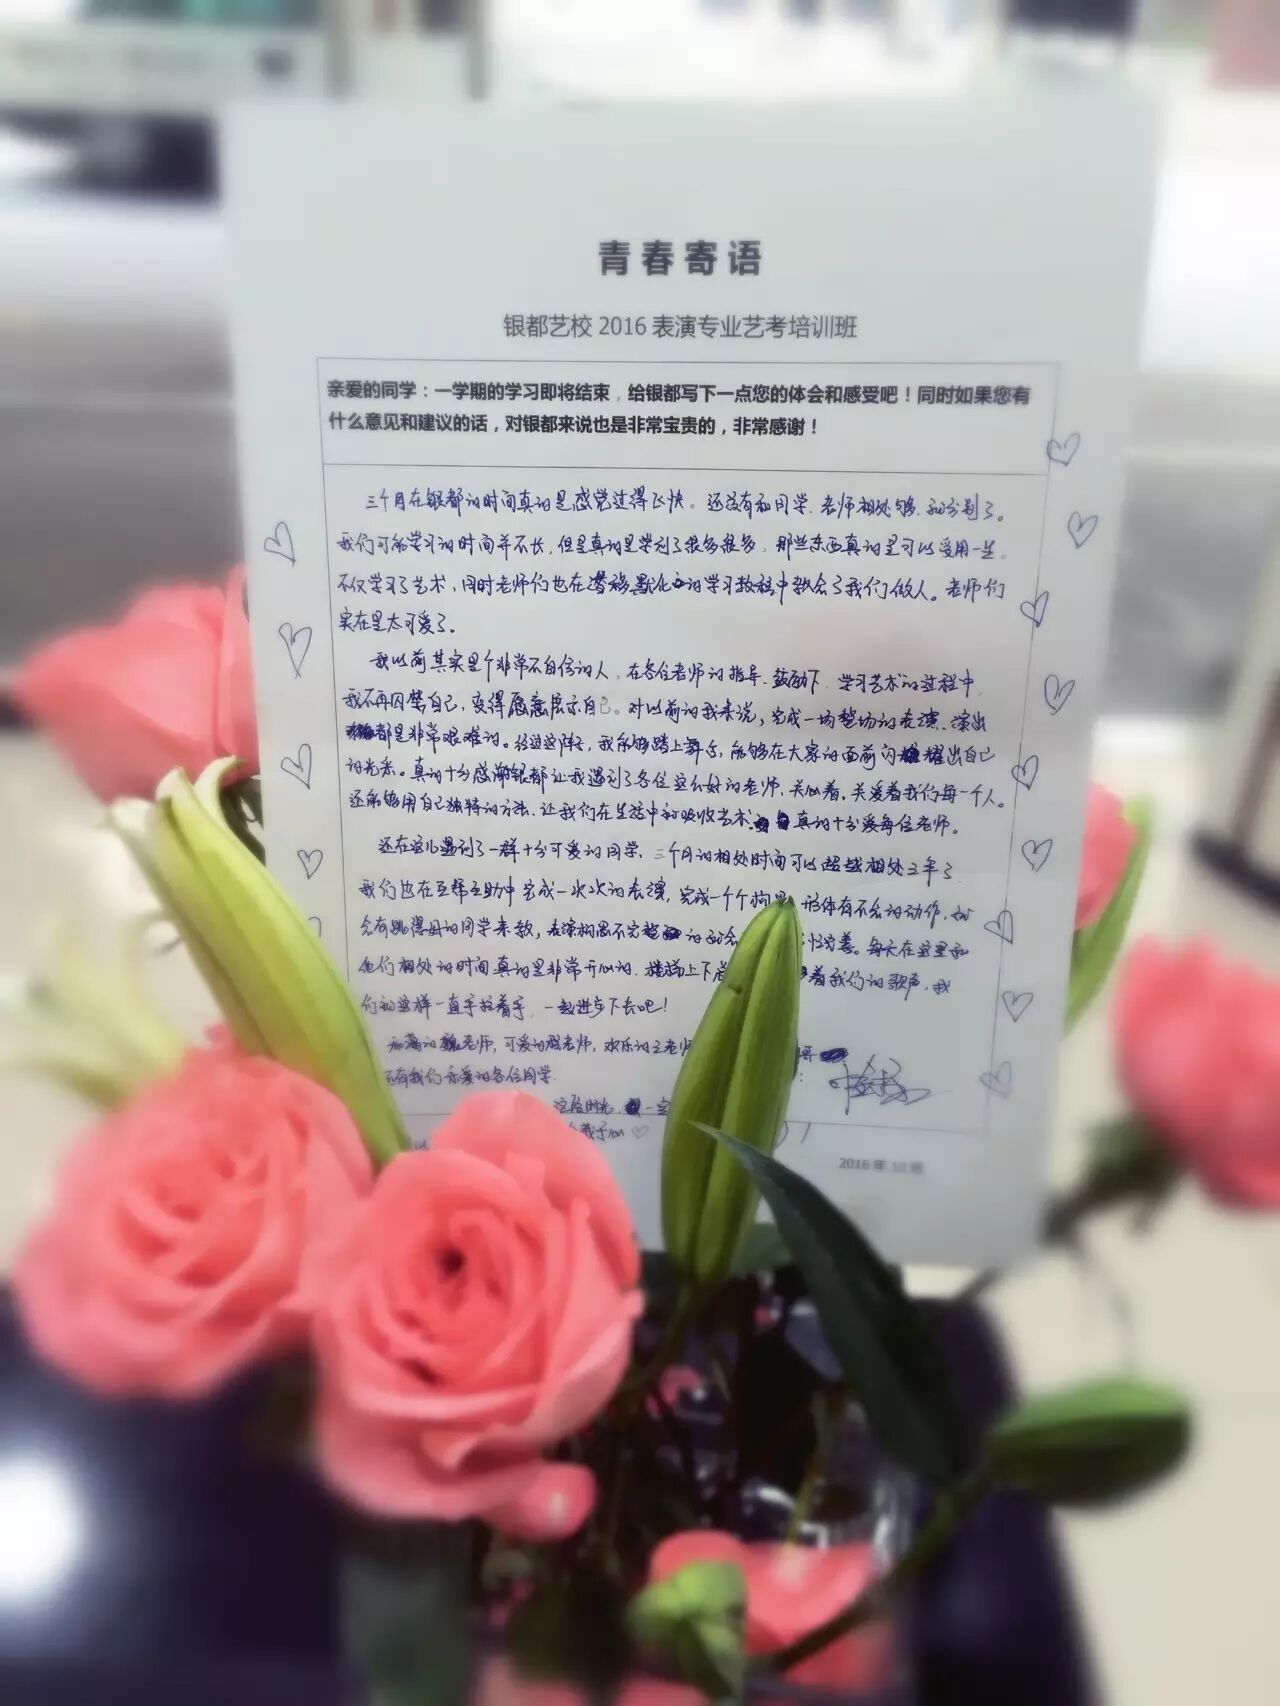 青春寄语
银都艺校 2016 表演专业艺考培训班
亲爱的同学：一学期的学习即将结束，给银都写下一点您的体会和感受吧！同时如果您有
什么意见和建议的话，对银都来说也是非常宝贵的，非常感谢！
三个月在银都的时间真的是感觉过得飞快。还没有和同学、老师相处够，就分别了。
我们可能学习的时间并不长，但是真的是学到了很多很多，那些东西真的是可以受用一生。
不仅学习了艺术，同时老师们也在潜移默化的学习教程中教会了我们做人。老师们
实在是太可爱了。
我以前其实是个非常不自信的人，在各位老师的指导、鼓励下，学习艺术的过程中，
我不再囚禁自己，变得愿意展示自己。对以前的我来说，完成一场整场的表演、演出
都是非常艰难的。经过这阵子，我能够踏上舞台，能够在大家的面前闪耀出自己
的光系。真的十分感谢银都让我遇到了各位这么好的老师，关心着，关爱着我们每一个人。
还能够用自己独特的方法，让我们在生活中和吸收艺术。真的十分爱每位老师。
还在这儿遇到了一群十分可爱的同学，三个月的相处时间可以超越相处三年了，
我们也在互帮互助中完成一次次的表演，完成一个个构思 形体有不会的动作，就
会有跳得好的同学来教，表演构思不完整的就会 完善。每天在这里和
他们相处的时间真的是非常开心的，楼梯上下 着我们的歌声，我
们就这样一直手拉着手，一起进步下去吧！
的 老师，可爱的程老师，欢乐的王老师 哥
还有我们亲爱的各位同学
这段时光， 一定
2016 年 12 月